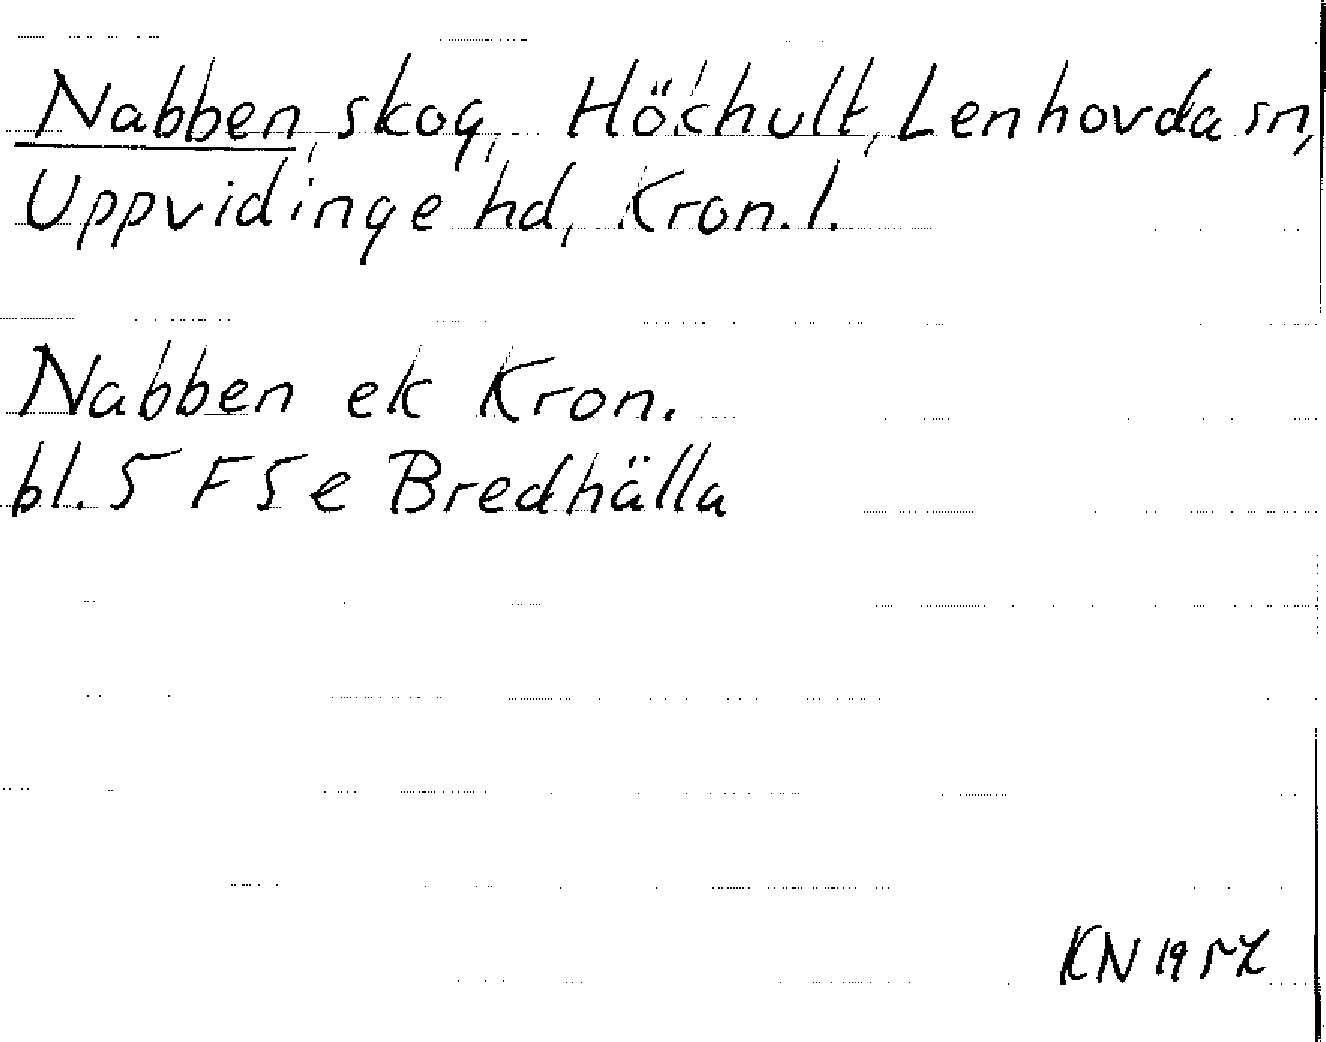 Nabben, skog, Hökhult, Lenhovda sn,
Uppvidinge hd, Kron. l.
Nabben ek Kron.
bl. 5 F 5 e Bredhälla
KN 1957